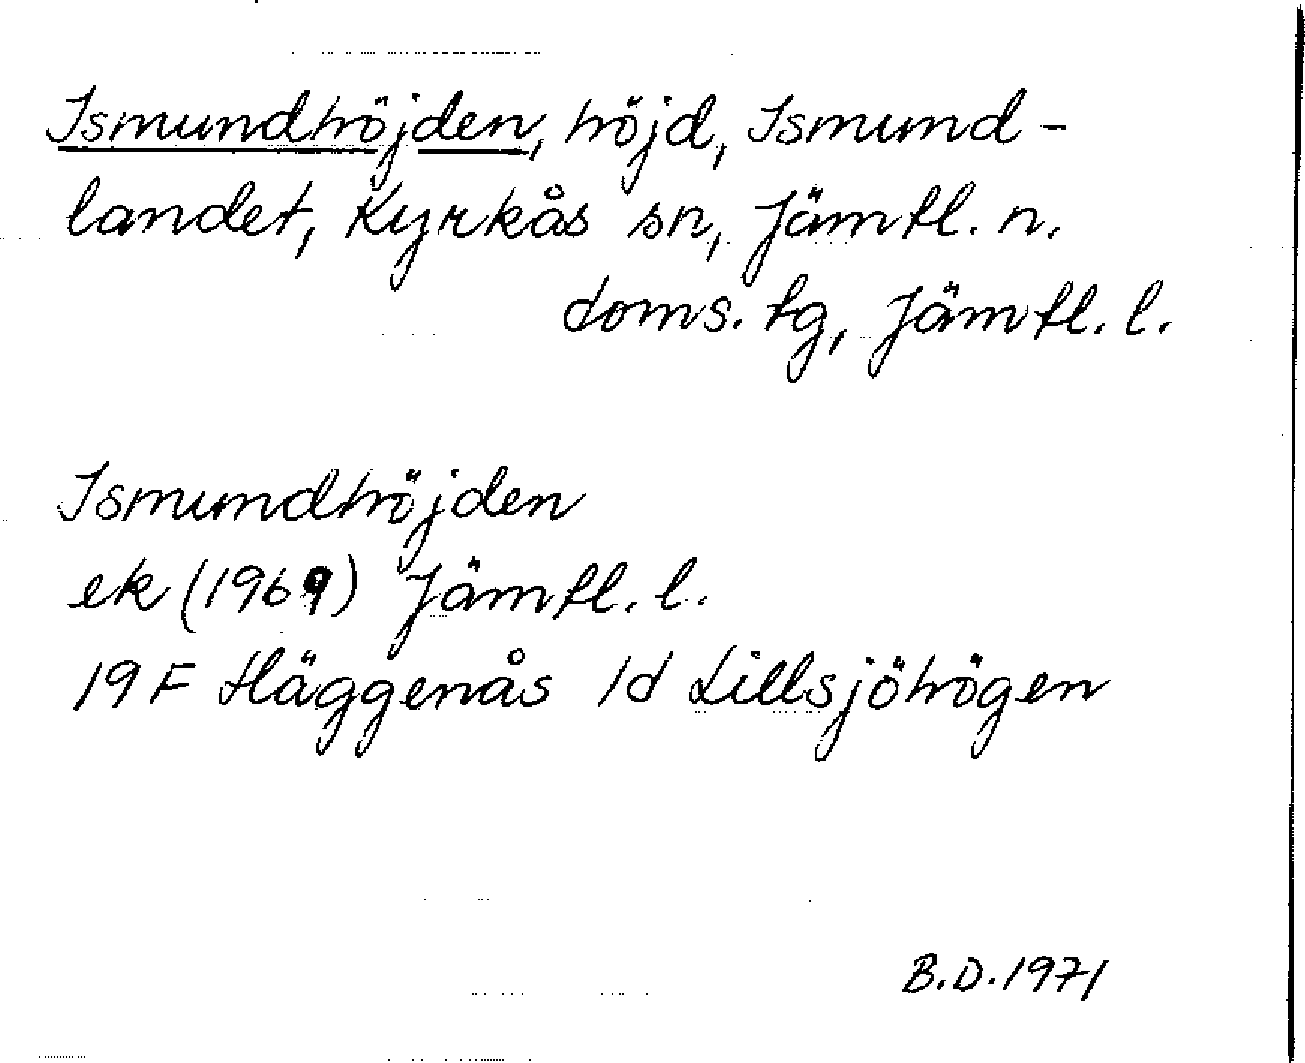 Ismundhöjden, höjd, Ismund-
landet, Kyrkås sn, Jämtl. n.
doms. tg, Jämtl. l.
Ismundhöjden
ek (1969) Jämtl. l.
19 F Häggenås 1d Lillsjöhögen
B.D. 1971